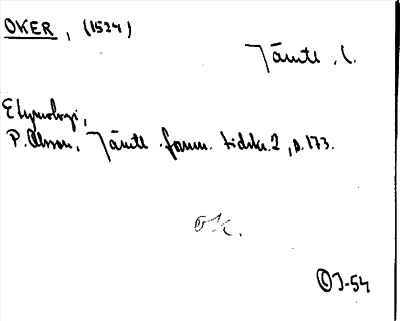 OKER, (1524)
Jämtl. l.
Etymologi,
P. Olsson, Jämtl. fornm. tidskr. 2, s. 173.
OK.
OJ-54